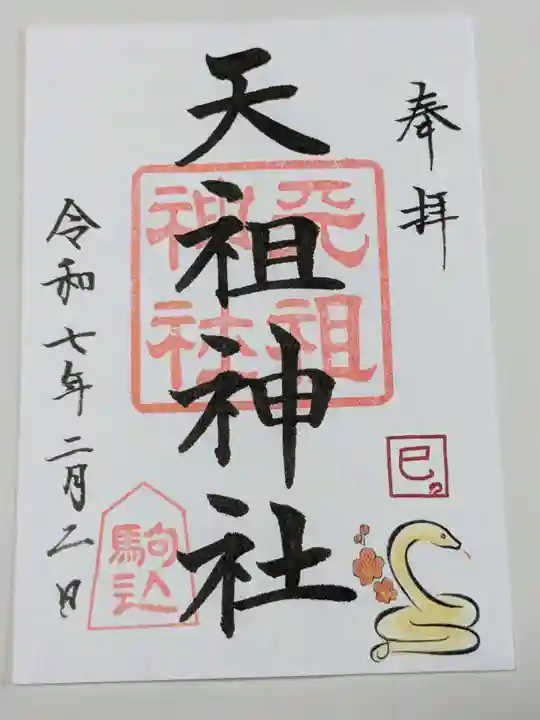 奉拝
巳
天祖神社
天祖
神社
駒込
令和七年二月二日